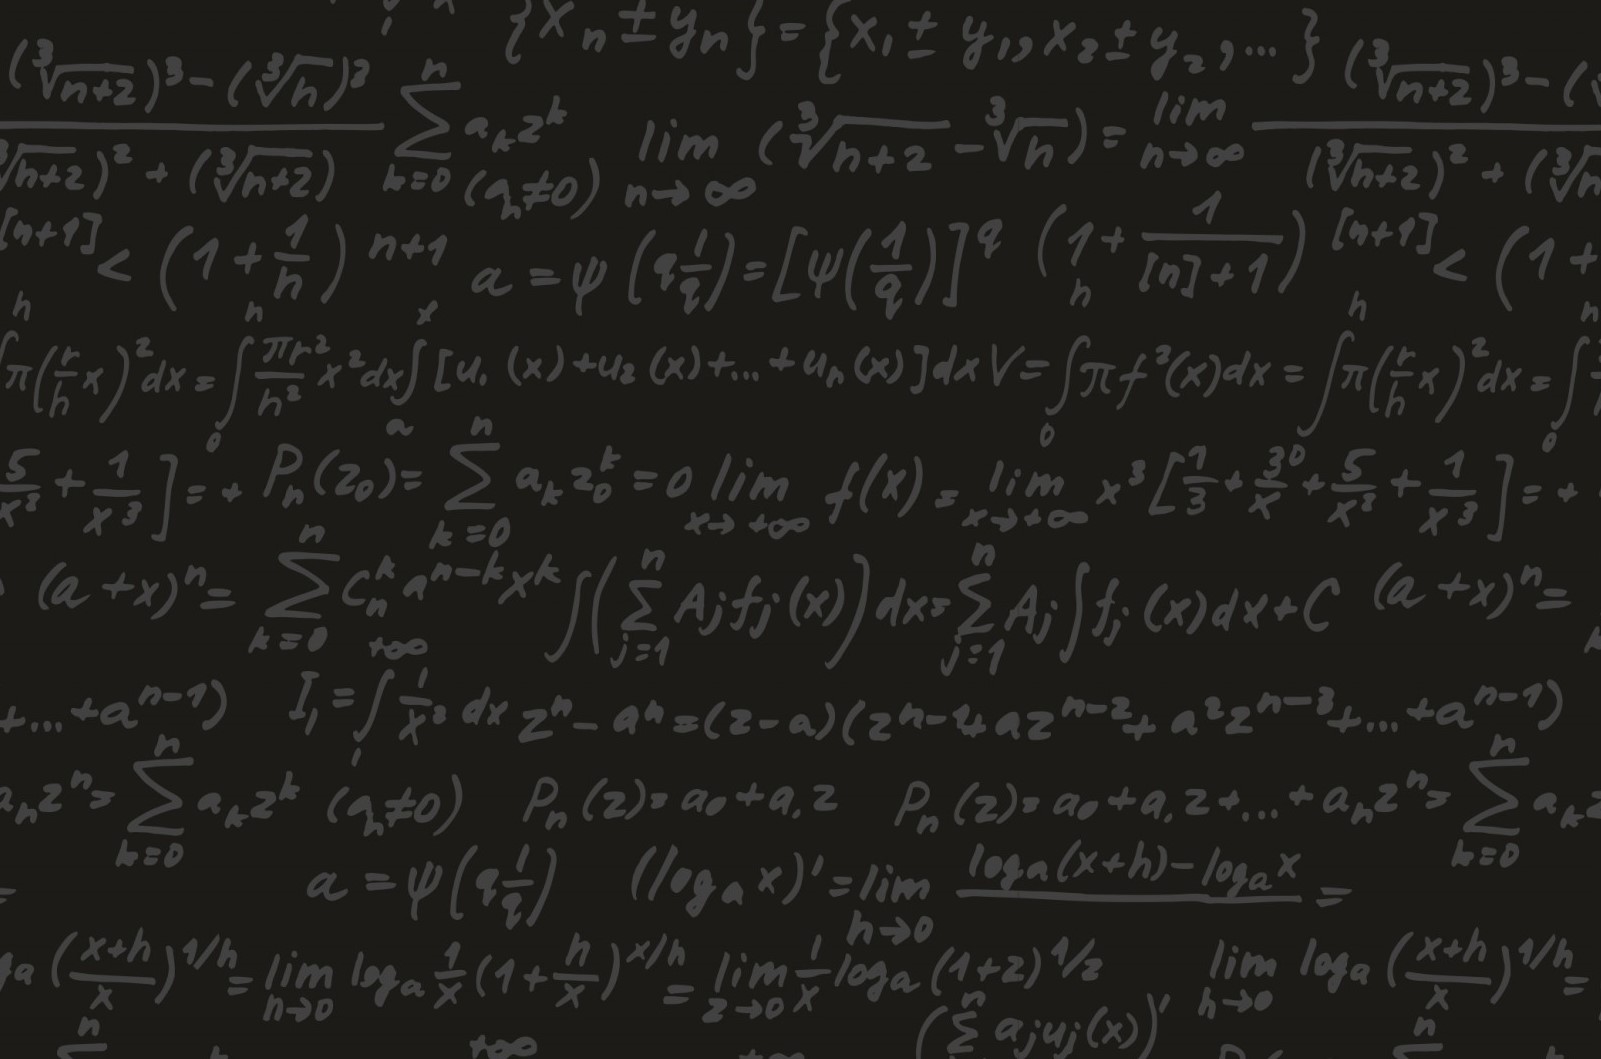 {xₙ ± yₙ} = {x₁ ± y₁, x₂ ± y₂, ...}
(∛(n+2))³ − (∛n)³
(∛(n+2))² + (∛(n+2))
∑ₖ₌₀ⁿ aₖzᵏ (aₙ≠0)
lim n→∞ (∛(n+2) − ∛n) = lim n→∞
(∛(n+2))³ − (
(∛(n+2))² + (∛n
[n+1] < (1 + 1/n)ⁿ⁺¹
a = ψ(q 1/q) = [ψ(1/q)]^q
(1 + 1/([n]+1))
[n+1] < (1 +
π(r/h x)² dx = ∫₀ʰ πr²/h² x² dx
∫ₐˣ [u₁(x) + u₂(x) + ... + uₙ(x)] dx
V = ∫₀ʰ π f²(x) dx = ∫₀ʰ π(r/h x)² dx = ∫₀
5/x² + 1/x³] = +
Pₙ(z₀) = ∑ₖ₌₀ⁿ aₖz₀ᵏ = 0
lim x→+∞ f(x) = lim x→+∞ x³ [1/3 + 30/x + 5/x² + 1/x³] = +
(a + x)ⁿ = ∑ₖ₌₀ⁿ Cₙᵏ aⁿ⁻ᵏ xᵏ
∫(∑ⱼ₌₁ⁿ Aⱼfⱼ(x)) dx = ∑ⱼ₌₁ⁿ Aⱼ ∫fⱼ(x) dx + C
(a + x)ⁿ =
+ ... + aⁿ⁻¹)
I₁ = ∫₁^+∞ 1/x² dx
zⁿ − aⁿ = (z − a)(zⁿ⁻¹ + azⁿ⁻² + a²zⁿ⁻³ + ... + aⁿ⁻¹)
aₙzⁿ = ∑ₖ₌₀ⁿ aₖzᵏ (aₙ≠0)
Pₙ(z) = a₀ + a₁z
Pₙ(z) = a₀ + a₁z + ... + aₙzⁿ = ∑ₖ₌₀ⁿ aₖz
=
a = ψ(q 1/q)
(logₐ x)′ = lim h→0 (logₐ(x+h) − logₐx) =
((x+h)/x)^1/h = lim h→0 logₐ 1/x (1 + h/x)^x/h = lim z→0 1/x logₐ(1+z)^1/z
lim h→0 logₐ((x+h)/x)^1/h =
(∑ⁿ aⱼuⱼ(x))′
n
+∞
n